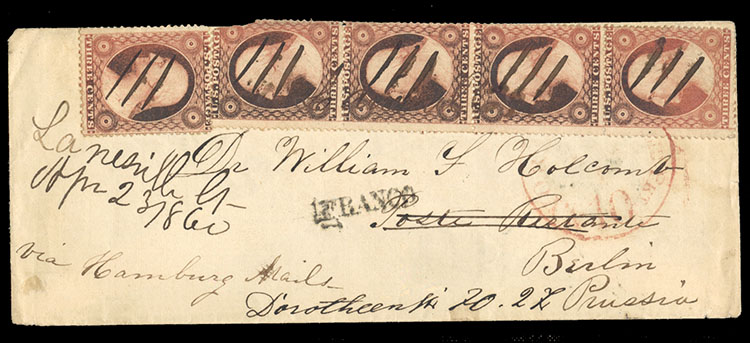 THREE CENTS
U.S. POSTAGE
THREE CENTS
U.S. POSTAGE
THREE CENTS
U.S. POSTAGE
THREE CENTS
U.S. POSTAGE
THREE CENTS
Lanesville Ct
Apr 23 1860
Dr William F Holcomb
FRANCO
10
Poste Restante
Berlin
via Hamburg Mails
Dorotheen St 20. 2 Z Prussia